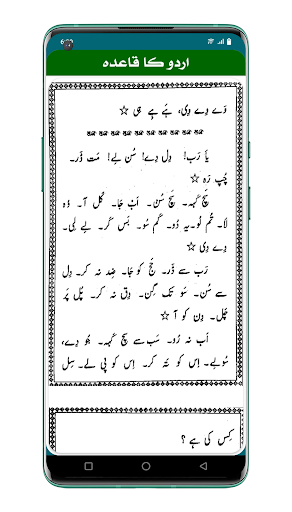 6:00
اردو کا قاعدہ
دے دے دی، ہے ہے ہی ☆
یا رَب! دِل دے! سُن بے! مَت ڈَر۔
چُپ رَہ ☆
سَچ کہہ۔ سَچ سُن۔ اَب جا۔ کَل آ۔ وُہ
لا۔ تُم لو۔ یہ دُو۔ گُم سُو۔ بَس کَر۔ بے لی۔
دے دی ☆
رَب سے ڈَر۔ حَج کو جا۔ ضِد نہ کر۔ دِل
سے سُن۔ سَو تک گِن۔ دِق نہ کر۔ پُل پَر
چَل۔ دِن کو آ ☆
اَب نہ رُو۔ سَب سے سَچ کہہ۔ جُو دے،
سُو لے۔ اِس کو تَہ کر۔ اِس کو پی لے۔ سِل
کِس کی ہے ؟